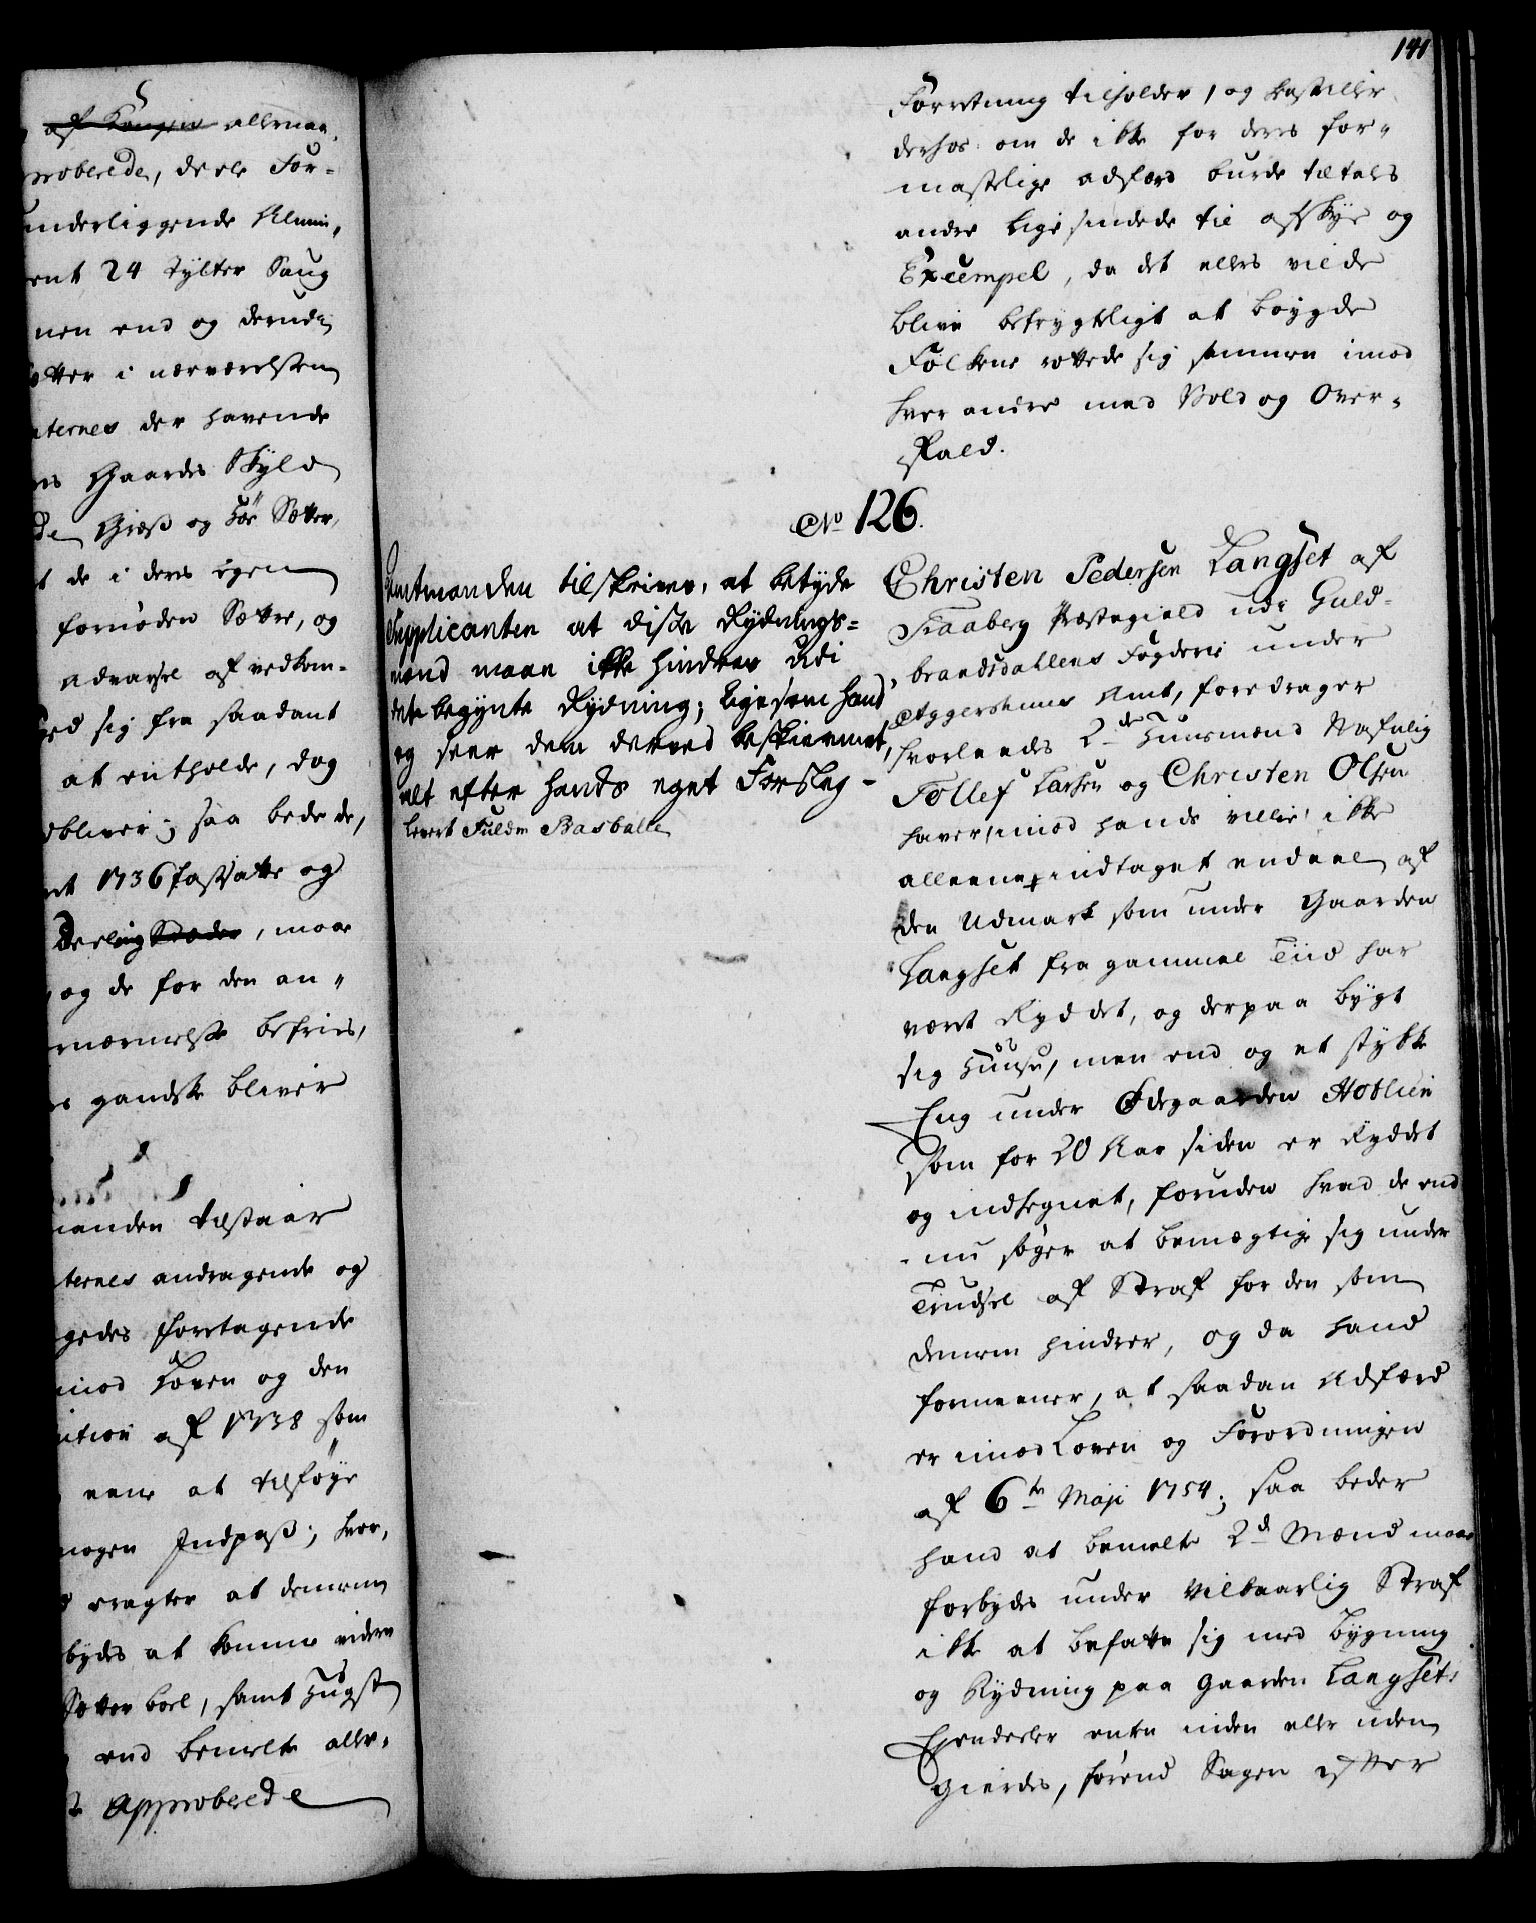 af Kongen allernaa„
proberede, deele For-
underliggende Almin„
ent 24 Tylter Saug
men end og deruds
Sætter i nærværelsen
nternes der havende
es Gaardes Skyld
de Græs og Høe Sætter,
t de i deres egen
fornøden Sætter, og
advarsel af vedkom-
ed sig fra saadant
at entholde, dog
dbliver; saa bede de,
nt 1736 fastsatte og
Deeling Steder, maae
og de for den an„
nærmelse befries,
es gandske bliver
manden tilstaaer
ternes andragende og
gedes foretagende
imod Loven og den
ution af 1738 som
eene at tilføye
nogen Indpass; hvor„
eragter at dennem
bydes at komme videre
Sætter boel, samt Hugst
end bemelte aller„
t approberede
141
Forretning tilholder, og hostiller
derhos om de ikke for deres for„
mastelige adfærd burde tiltales
andre ligesindede til afskye og
Exempel, da det ellers vilde
blive betrygteligt at bøygde
Folkene rottede sig sammen imod
hver andre med Vold og Over„
fald.
No 126.
Amtmanden tilskrives, at betyde
Supplicanten at disse Rydnings=
mænd maae ikke hindres udi
dete begynte Rydning; ligesom hand
og seer dem derved beskiermet,
alt efter hands eget Forslag -
levert Fuldm Basballe
Christen Pedersen Langset af
Faaberg Præstegield udi Guld-
brandsdahlens Fogderie under
Aggershuus Amt, foredrager
hvorleedes 2de Huusmænd Nafnlig
Tollef Larsen og Christen Olsen
haver, imod hands villie, ikke
alleene indtaget endeel af
den Udmark som under Gaarden
Langset fra gammel Tiid har
vært Ryddet, og derpaa bygt
sig Huuse, men end og et stykke
Eng under Ødegaarden Hoblien
som for 20 Aar siden er Ryddet
og indhegnet, foruden hvad de end
nu søger at bemægtige sig under
Trudsel af Straf for den som
dennem hindrer, og da hand
formeener, at saadan Adfærd
er imod Loven og Forordningen
af 6te Maji 1754; saa beder
hand at bemelte 2de Mænd maae
forbydes under vilkaarlig Straf
ikke at befatte sig med Bygning
og Rydning paa Gaarden Langsets
Ejendeeler enten inden eller uden
gierdes, førend Sagen efter